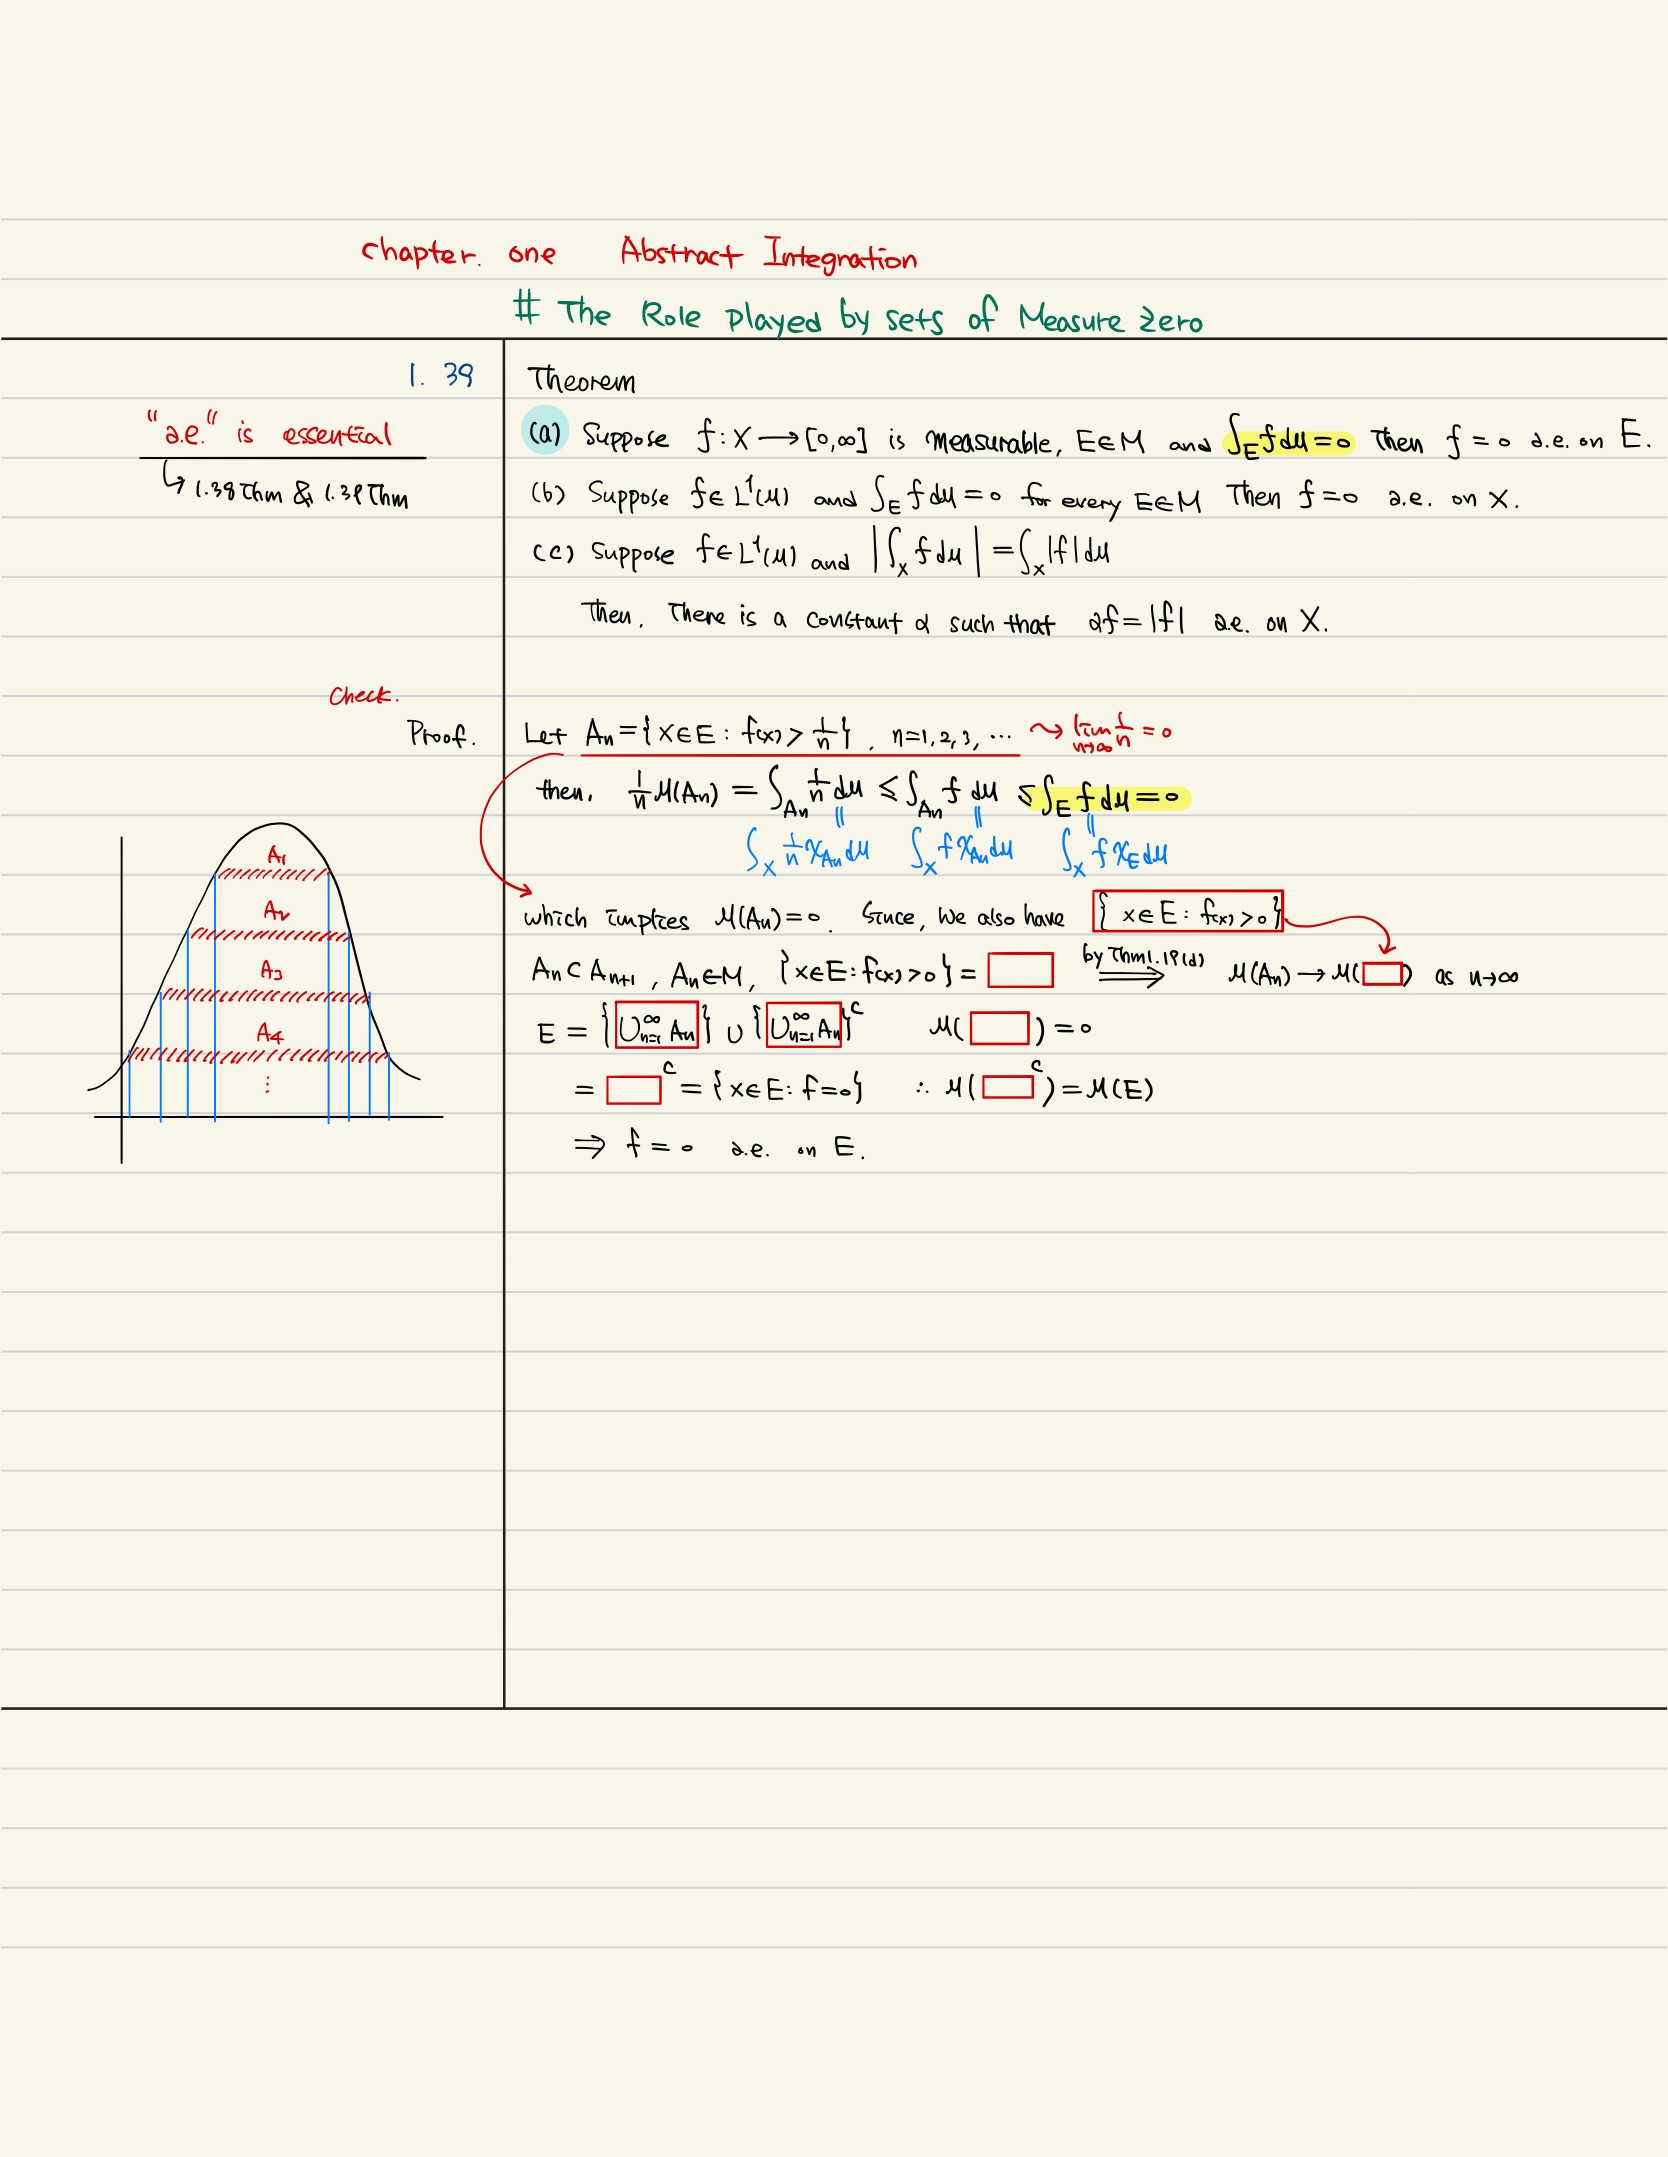 chapter. one Abstract Integration
# The Role Played by sets of Measure zero
1. 39
Theorem
"a.e." is essential
↳ 1.38 Thm & 1.39 Thm
(a) Suppose f : X → [0,∞] is measurable, E∈M and ∫_E f dμ = 0 Then f = 0 a.e. on E.
(b) Suppose f∈L¹(μ) and ∫_E f dμ = 0 for every E∈M Then f = 0 a.e. on X.
(c) Suppose f∈L¹(μ) and |∫_X f dμ| = ∫_X |f| dμ
Then, There is a constant α such that αf = |f| a.e. on X.
Check.
Proof.
Let An = {x∈E : f(x) > 1/n}, n=1,2,3, ⋯ ⇝ lim_{n→∞} 1/n = 0
then, 1/n μ(An) = ∫_An 1/n dμ ≤ ∫_An f dμ ≤ ∫_E f dμ = 0
∫_X 1/n χ_An dμ ∫_X f χ_An dμ ∫_X f χ_E dμ
which implies μ(An) = 0. Since, We also have {x∈E : f(x) > 0}
An ⊂ An+1, An∈M, {x∈E : f(x) > 0} = □ by Thm 1.19(d) ⟹ μ(An) → μ(□) as n→∞
E = {∪_{n=1}^∞ An} ∪ {∪_{n=1}^∞ An}^c μ(□) = 0
= □^c = {x∈E : f = 0} ∴ μ(□^c) = μ(E)
⇒ f = 0 a.e. on E.
A1
A2
A3
A4
⋮